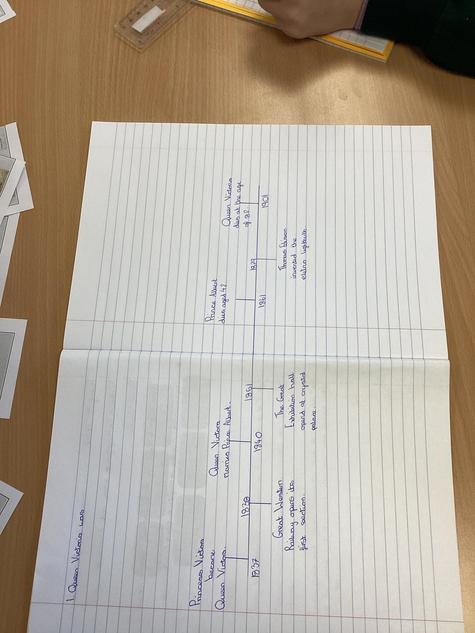 1. Queen Victoria was
Princess Victoria
became
Queen Victoria.
1837
1838
Great Western
Railway opens its
first section.
Queen Victoria
marries Prince Albert.
1840
1851
The Great
Exhibition hall
opend at crystal
palace.
Prince Albert
dies aged 42.
1861
1879
Thomas Edison
invented the
lightbulb.
Queen Victoria
dies at the age
of 82.
1901